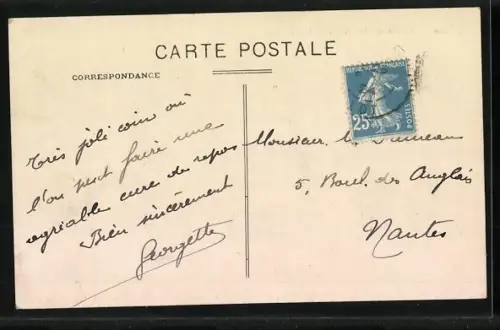 CARTE POSTALE
CORRESPONDANCE
RÉPUBLIQUE FRANÇAISE
25c
POSTES
Très joli coin où
l'on peut faire une
agréable cure de repos
Bien sincèrement
Georgette
Monsieur
5, Boul. des Anglais
Nantes